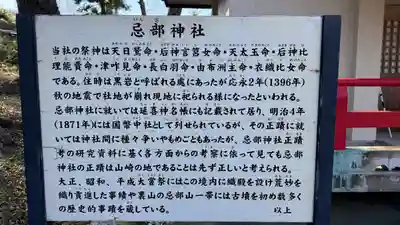 忌部神社
当社の祭神は天日鷲命・后神言筥女命・天太玉命・后神比
理能賣命・津咋見命・長白羽命・由布洲主命・衣織比女命
である。往時は黒岩と呼ばれる處にあったが応永2年(1396年)
秋の地震で社地が崩れ現地に祀られる様になったといわれる。
忌部神社に就いては延喜神名帳にも記載されて居り、明治4年
(1871年)には国幣中社として列せられているが、その正蹟に就
いては神社間に種々争いやもめごともあったが、忌部神社正蹟
考の研究資料に基く各方面からの考察に依って見ても忌部
神社の正蹟は山崎の地であることは先ず正しいと考られる。
大正、昭和、平成大嘗祭にはこの境内に織殿を設け荒妙を
織り貢進した事績や裏山の忌部山一帯には古墳を初め数多く
の歴史的事蹟を蔵している。
以上